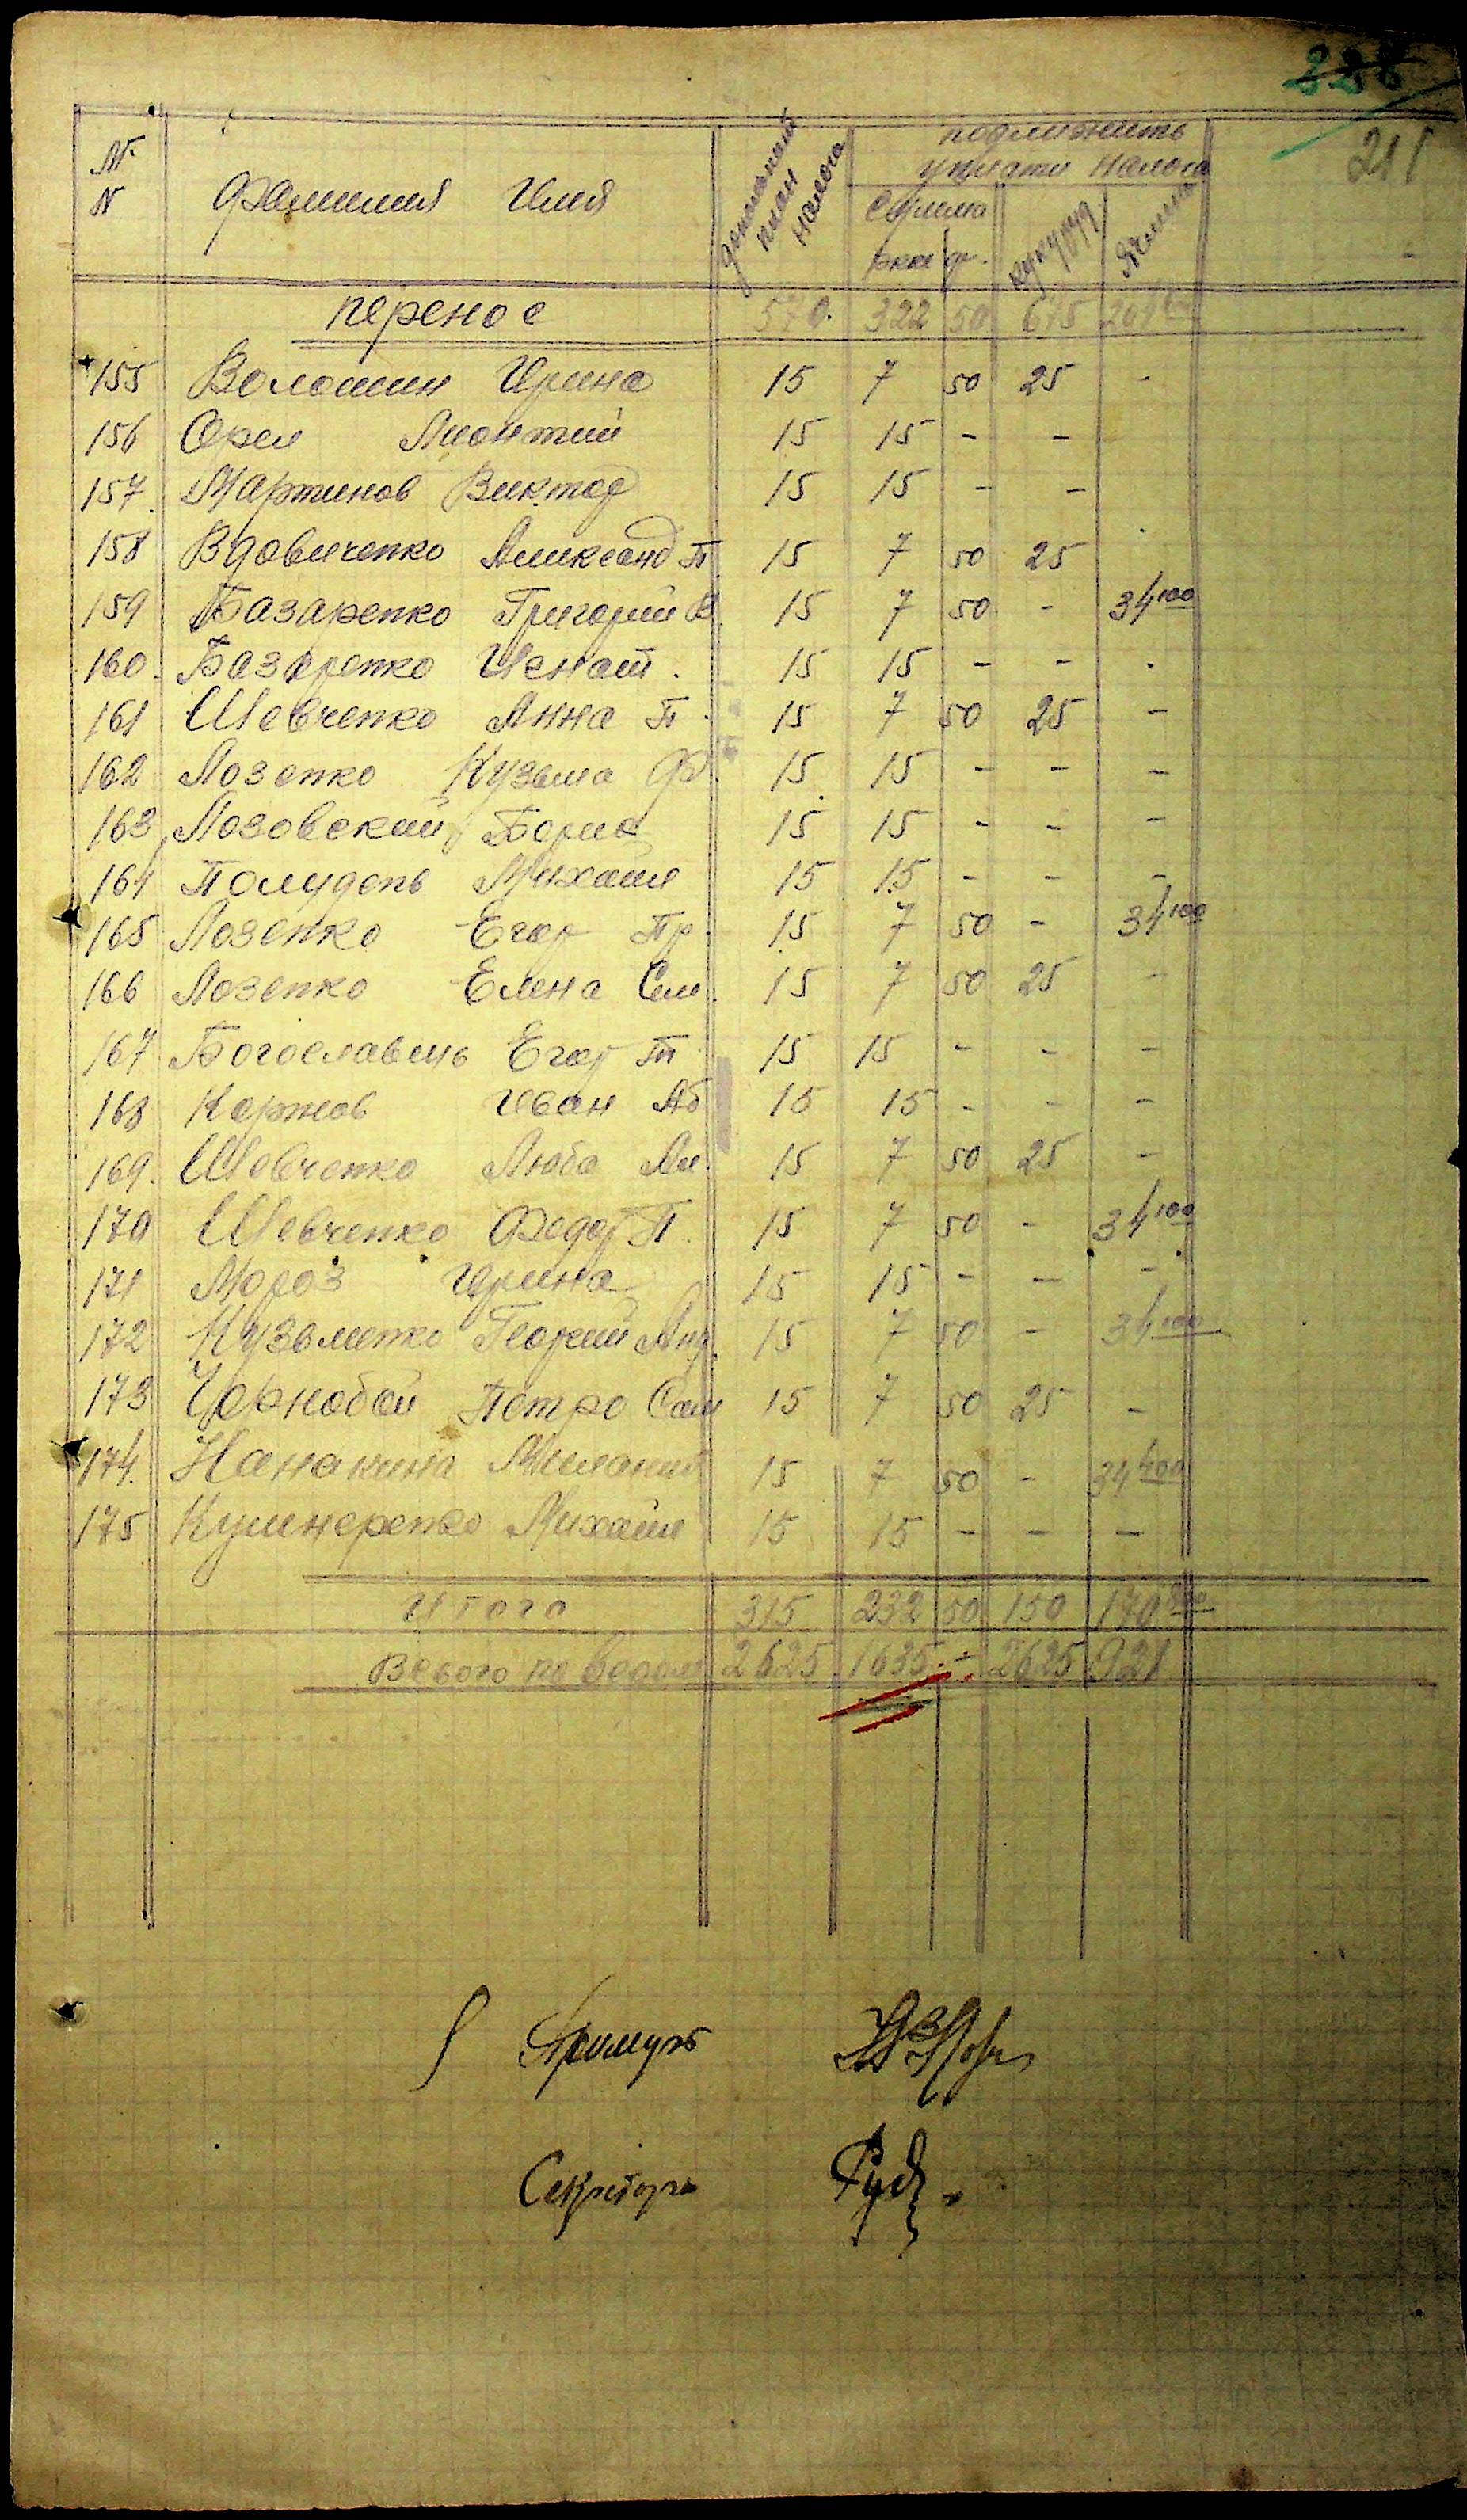 338
211
№ N Фамилия Имя
план налога
подлижить
уплати налога
Сумма кукуруз Ячмень
ркм ф.
перенос 570. 322 50 675
155 Волошин Ирина 15 7 50 25 -
156 Орел Лионтий 15 15 - -
157. Мартинов Виктор 15 15 - -
158 Вдовиченко Аликсанд П 15 7 50 25
159 Базаренко Григорий В. 15 7 50 - 34 100
160. Базаренко Игнат. 15 15 - - .
161 Шевченко Анна П. 15 7 50 25 -
162 Лозенко Кузьма Ф. 15 15 - - -
163 Лозовский Борис 15 15 - - -
164 Полудень Михаил 15 15 - - -
165 Лозенко Егор Пр. 15 7 50 - 34 100
166 Лозенко Елена Сем. 15 7 50 25 -
167 Богославець Егор Т. 15 15 - - -
168 Коржов Иван Аб 15 15 - - -
169. Шевченко Люба Ал. 15 7 50 25 -
170 Шевченко Федор П. 15 7 50 - 34 100
171 Мороз Ирина 15 15 - - -
172 Кузьменко Георгий Анд. 15 7 50 - 34 100
173 Чернобай Петро Сам 15 7 50 25 -
174. Нанакина Милания 15 7 50 - 34 100
175 Кушнеренко Михаил 15 15 - - -
Итого 315 232 50 150 170
Всього по ведом 2625 1635 - 2625 921
Примурь
Секритарь Руд